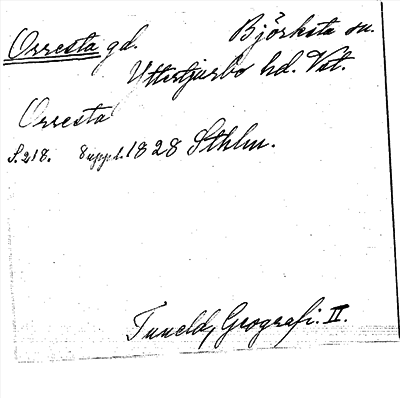 Orresta gd. Björksta sn.
Yttertjurbo hd. Vst.
Orresta
S. 218. 8 uppl. 1828 Sthlm.
Tuneld, Geografi. II.